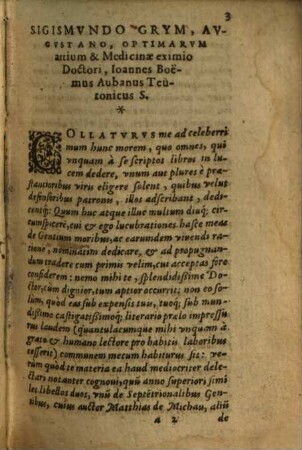 3
SIGISMVNDO GRYM, AV-
GVSTANO, OPTIMARVM
artium & Medicinæ eximio
Doctori, Ioannes Boë-
mus Aubanus Teu-
tonicus S.
*
COLLATVRVS me ad celeberri
mum hunc morem, quo omnes, qui
vnquam à se scriptos libros in lu-
cem dedere, vnum aut plures è præ-
stantioribus viris eligere solent, quibus velut
defensoribus patronis, illos adscribant, dedi-
centq́;: Quum huc atque illuc multum diuq́;, cir-
cumspicerē, cui & ego lucubrationes hasce meas
de Gentium moribus, ac earumdem viuendi ra-
tione, nominatim dedicare, & ad propugnan-
dum tradere cum primis velim, cui acceptas fore
confiderem: nemo mihi te, splendidissime Do-
ctor, cum dignior, tum aptior occurrit: non eo so-
lum, quòd eas sub expensis tuis, tuoq́; sub mun-
dissimo castigatissimoq́; literario prælo impressu-
rus laudem (quantulacumque mihi vnquam à
grato & humano lectore pro habitis laboribus
cesserit) communem mecum habiturus sit: ve-
rum quòd te materia ea haud mediocriter dele-
ctari notanter cognoui, quū anno superiori, simi
les libellos duos, vnū de Septētrionalibus Gen-
tibus, cuius auctor Matthias de Michau, aliū
a 2 de